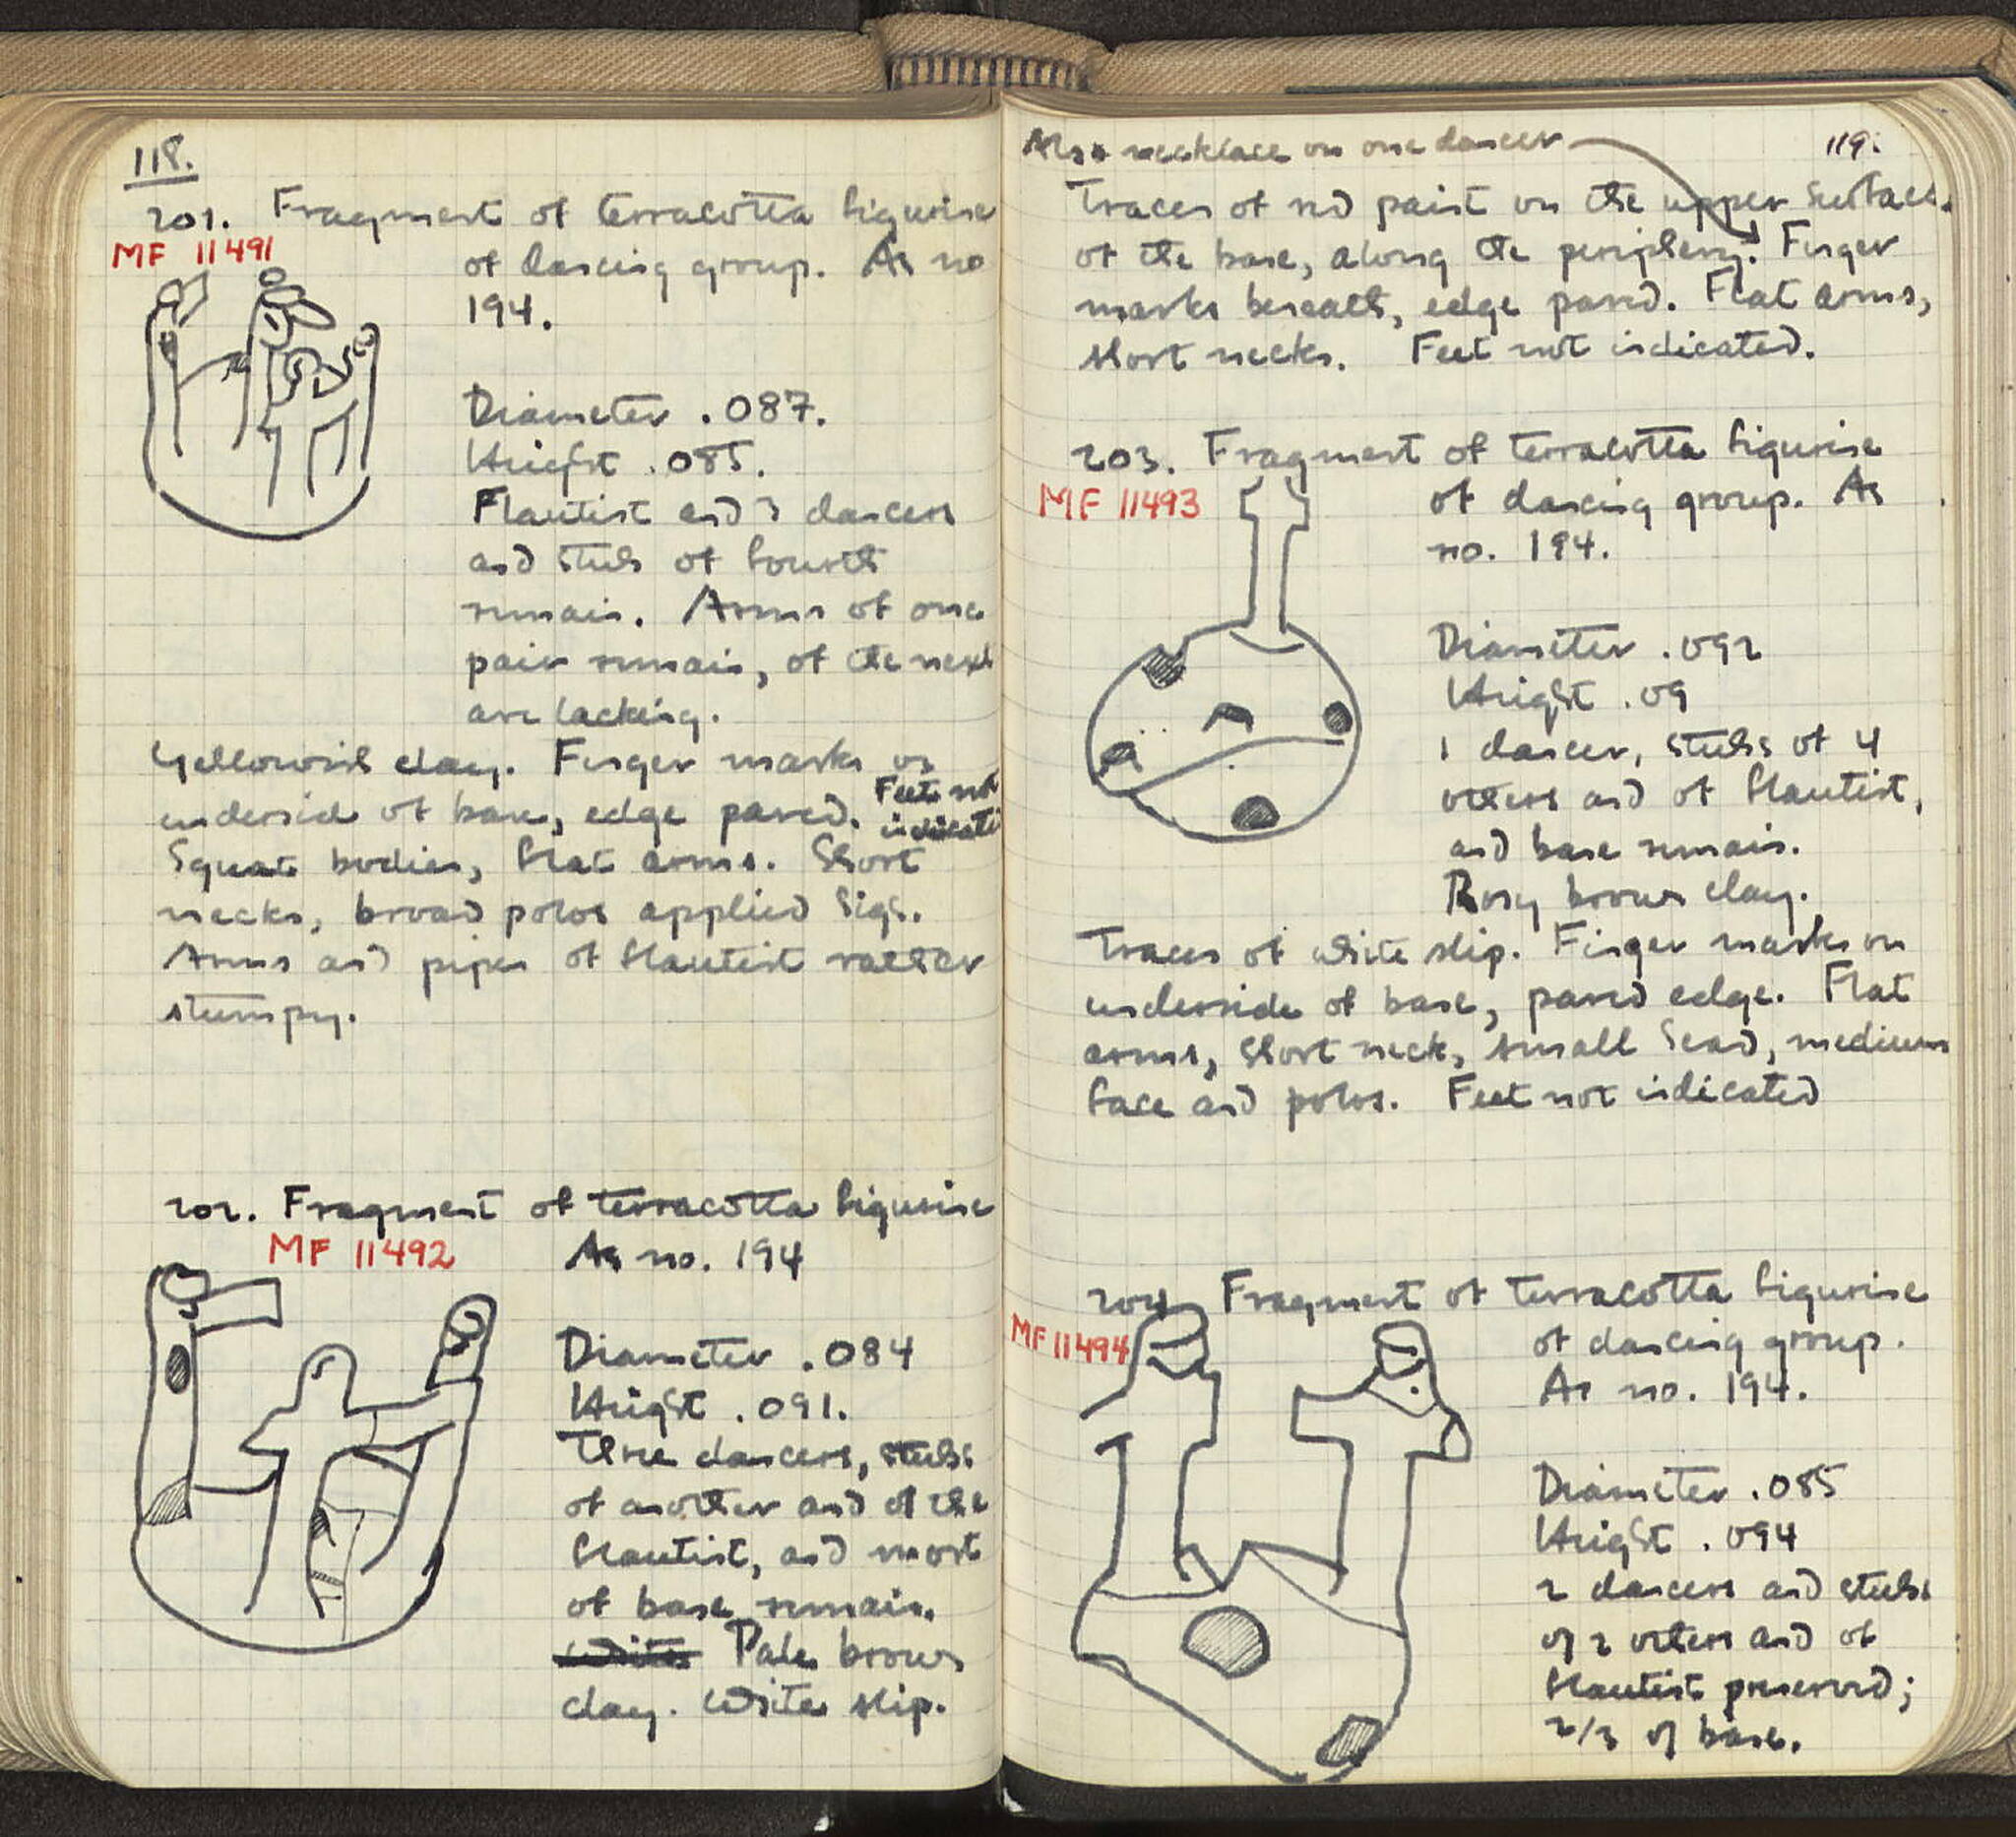 118.
201. Fragment of terracotta figurine
MF 11491
of dancing group. As no
194.
Diameter .087.
Height .085.
Flautist and 3 dancers
and stub of fourth
remain. Arms of one
pair remain, of the next
are lacking.
Yellowish clay. Finger marks on
underside of base, edge pared. Feet not
indicated
Squat bodies, flat arms. Short
necks, broad polos applied figs.
Arms and pipes of flautist rather
stumpy.
202. Fragment of terracotta figurine
MF 11492
As no. 194
Diameter .084
Height .091.
Three dancers, stubs
of another and of the
flautist, and most
of base remain.
White Pale brown
clay. White slip.
Also necklace on one dancer
119.
Traces of red paint on the upper surface.
of the base, along the periphery. Finger
marks beneath, edge pared. Flat arms,
short necks. Feet not indicated.
203. Fragment of terracotta figurine
MF 11493
of dancing group. As
no. 194.
Diameter .092
Height .09
1 dancer, stubs of 4
others and of flautist,
and base remain.
Rosy brown clay.
Traces of white slip. Finger marks on
underside of base, pared edge. Flat
arms, short neck, small head, medium
face and polos. Feet not indicated
204 Fragment of terracotta figurine
MF 11494
of dancing group.
As no. 194.
Diameter .085
Height .094
2 dancers and stubs
of 2 others and of
flautist preserved;
2/3 of base.